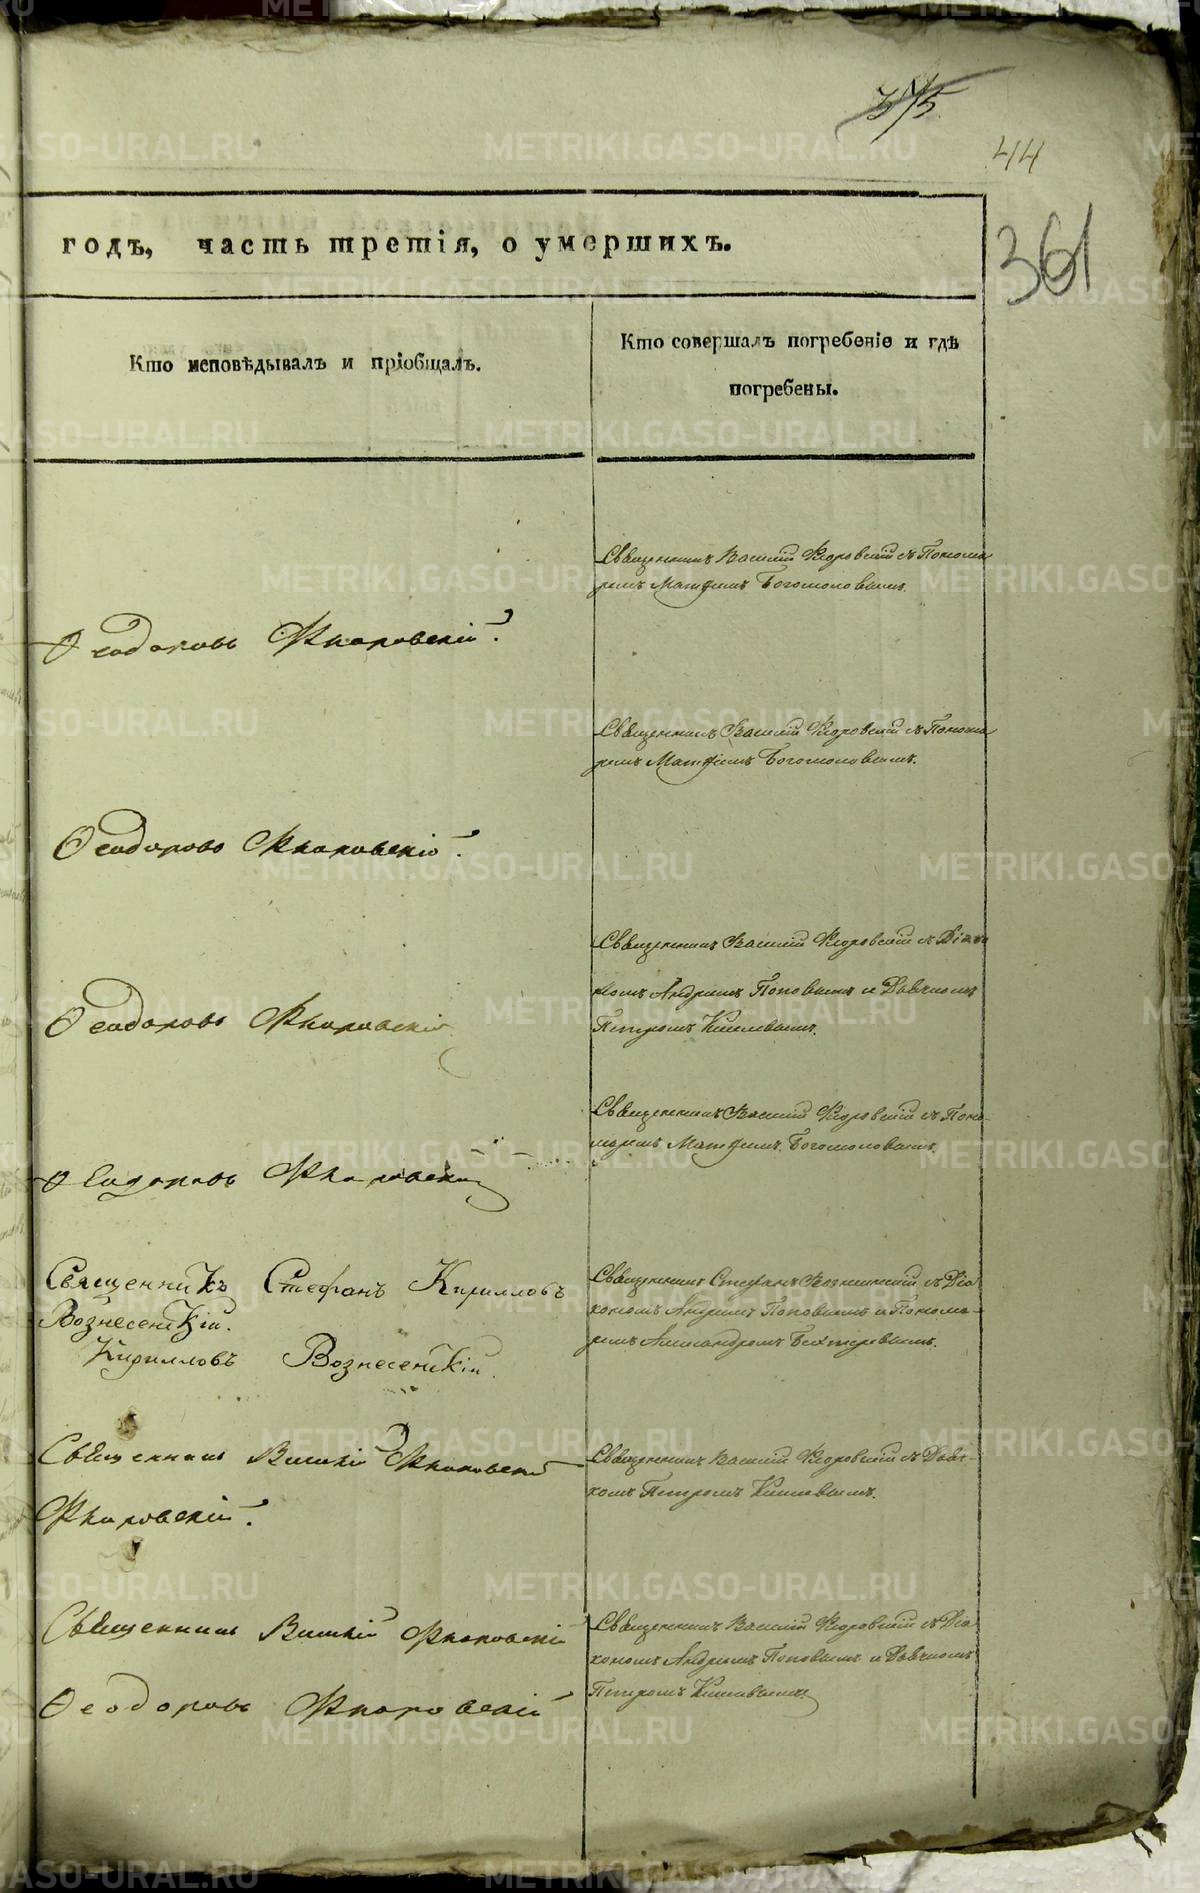 375
44
361
годъ, часть третія, о умершихъ.
Кто исповѣдывалъ и пріобщалъ.
Кто совершалъ погребеніе и гдѣ
погребены.
Священникъ Василій Флоровскій съ Понома
ремъ Матфіемъ Богомоловымъ.
Ѳеодоровъ Флоровскій.
Священникъ Василій Флоровскій съ Понома
ремъ Матфіемъ Богомоловымъ.
Ѳеодоровъ Флоровскій.
Священникъ Василій Флоровскій съ Діако
номъ Андреемъ Поповымъ и Дьячкомъ
Петромъ
Ѳеодоровъ Флоровскій
Священникъ Василій Флоровскій съ Поно-
маремъ Матфіемъ Богомоловымъ.
Ѳеодоровъ Флоровскій
Священникъ Стефанъ Кирилловъ
Вознесенскій.
Кирилловъ Вознесенскій.
Священникъ Стефанъ Вознесенскій съ Діа
кономъ Андреемъ Поповымъ и Понома-
ремъ Александромъ Бехтеревымъ.
Священникъ Василій Флоровскій
Флоровскій.
Священникъ Василій Флоровскій съ Дьяч-
комъ Петромъ
Священникъ Василій Флоровскій
Ѳеодоровъ Флоровскій
Священникъ Василій Флоровскій съ Діа
кономъ Андреемъ Поповымъ и Дьячкомъ
Петромъ
METRIKI.GASO-URAL.RU